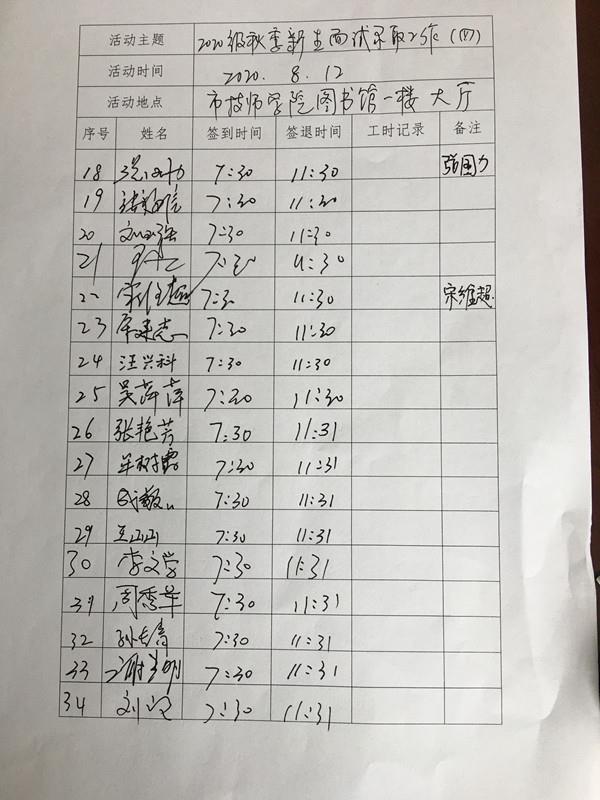 活动主题 2020级秋季新生面试录取工作(四)
活动时间 2020. 8. 12
活动地点 市技师学院图书馆一楼大厅
序号 姓名 签到时间 签退时间 工时记录 备注
18 7:30 11:30 张国力
19 7:30 11:30
20 刘小强 7:30 11:30
21 7:30 11:30
22 宋维超 7:30 11:30 宋维超
23 7:30 11:30
24 汪兴科 7:30 11:30
25 吴萍萍 7:30 11:30
26 张艳芳 7:30 11:31
27 牟树露 7:30 11:31
28 7:30 11:31
29 王山山 7:30 11:31
30 李文学 7:30 11:31
31 周秀华 7:30 11:31
32 孙长青 7:30 11:31
33 7:30 11:31
34 7:30 11:31